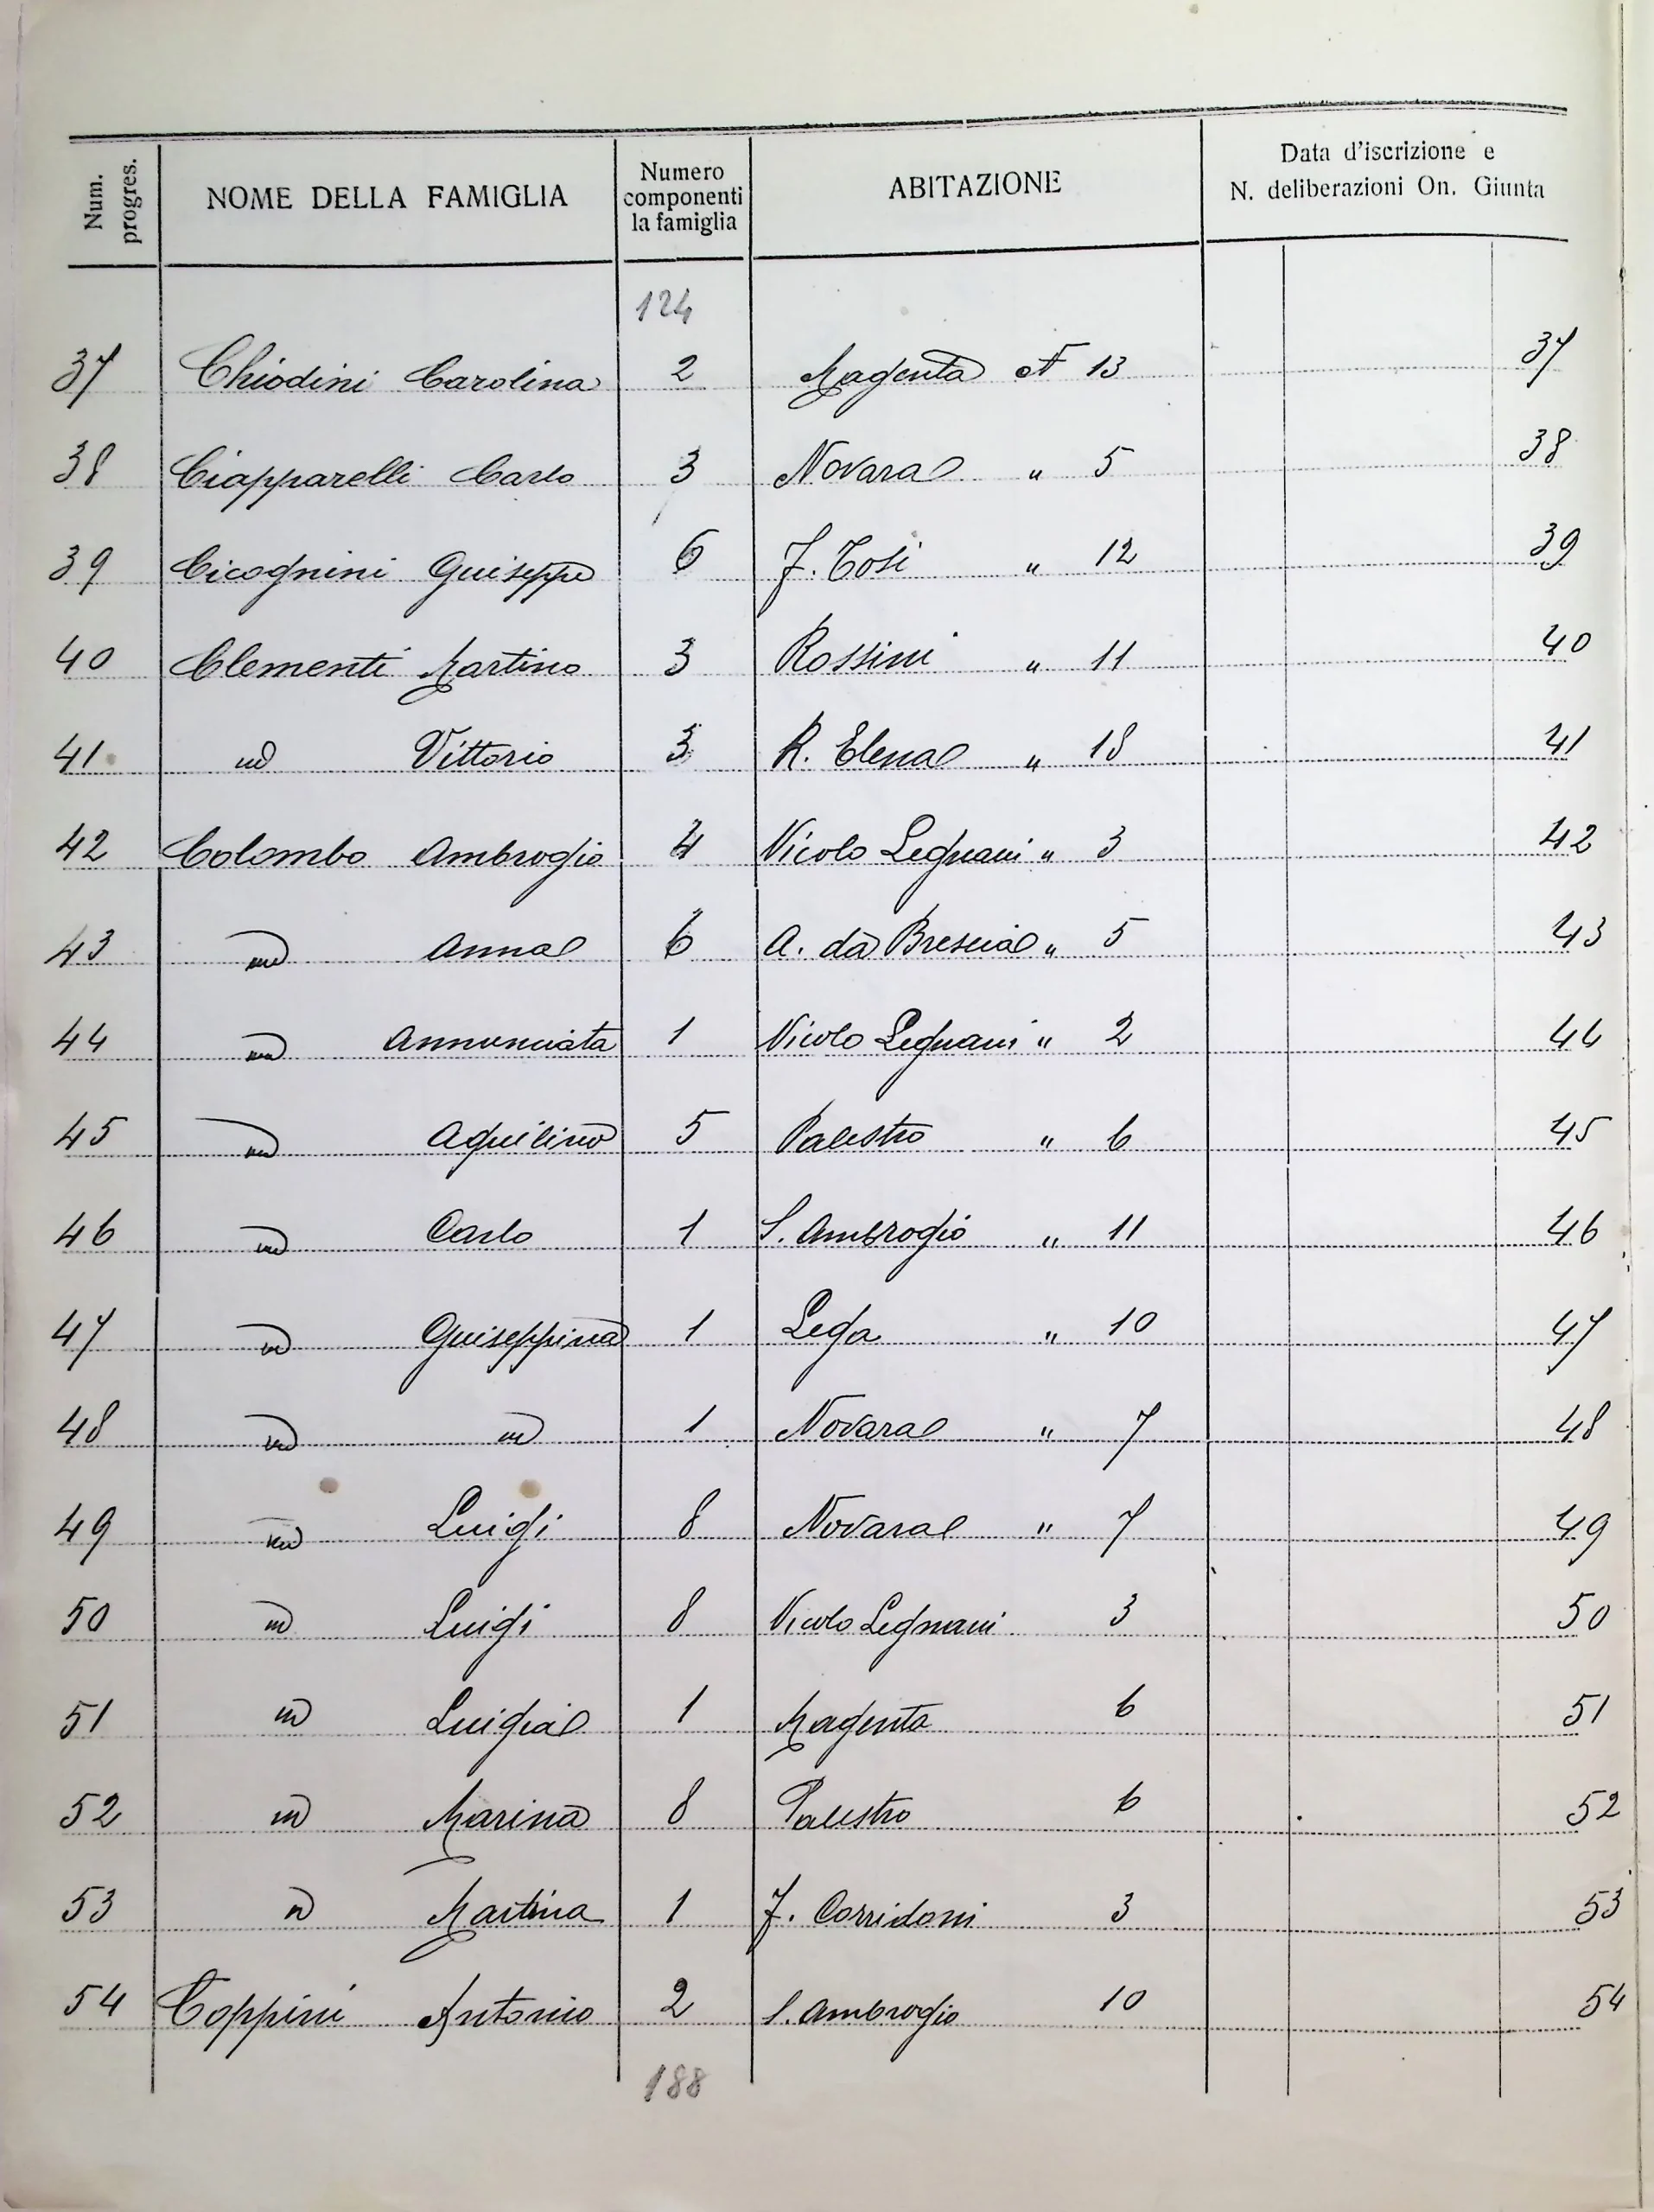 Num. progres.
NOME DELLA FAMIGLIA
Numero componenti la famiglia
ABITAZIONE
Data d'iscrizione e N. deliberazioni On. Giunta
124
37 Chiodini Carolina 2 Magenta N 13 37
38 Ciapparelli Carlo 3 Novara " 5 38
39 Cicognini Guiseppe 6 F. Tosi " 12 39
40 Clementi Martino 3 Rossini " 11 40
41 id Vittorio 3 R. Elena " 18 41
42 Colombo Ambrogio 4 Vicolo Legnani " 3 42
43 id Anna 6 A. da Brescia " 5 43
44 id Annunciata 1 Vicolo Legnani " 2 44
45 id Aquilino 5 Palestro " 6 45
46 id Carlo 1 S. Ambrogio " 11 46
47 id Guiseppina 1 Lega " 10 47
48 id id 1 Novara " 7 48
49 id Luigi 8 Novara " 7 49
50 id Luigi 8 Vicolo Legnani 3 50
51 id Luigia 1 Magenta 6 51
52 id Marina 8 Palestro 6 52
53 id Martina 1 F. Corridoni 3 53
54 Coppini Antonio 2 S. Ambrogio 10 54
188